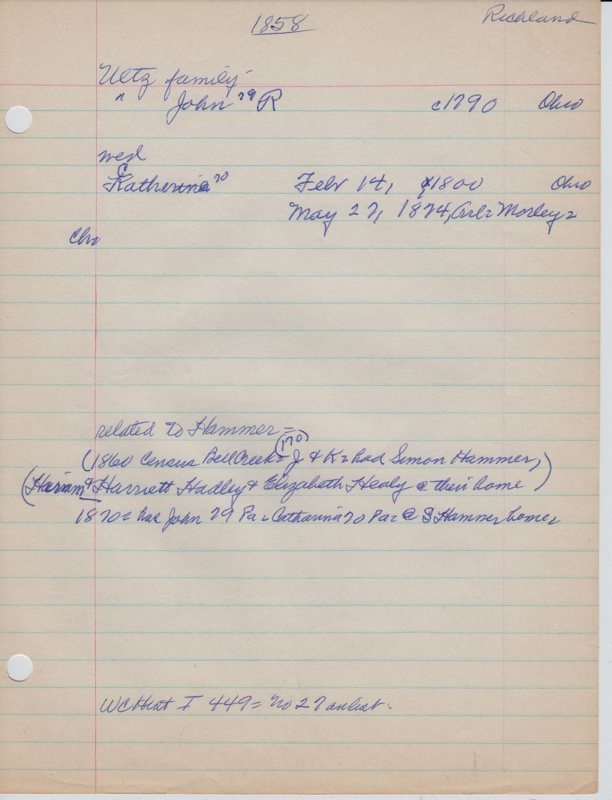 1858 Richland
Ultz family-
" John 79 R c1790 Ohio
wed
Katherina 70 Febr 14, 1800 Ohio
May 27, 1874,
Chr
related to Hammer=
(1860 Census Bell Creek= (170) J & K= had Simon Hammer,)
(Hiriam & Harriett Hadley & Elizabeth Healy @ their home)
1870= has John 79 Pa= Catharina 70 Pa= @ S Hammer home=
WC Hist I 449= no 27